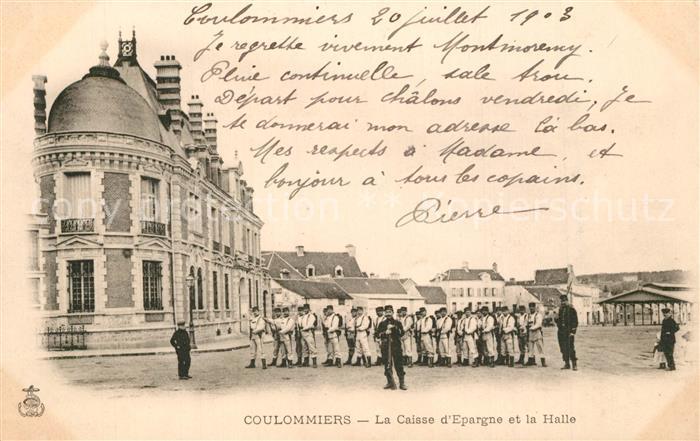 Coulommiers 20 Juillet 1903
Je regrette vivement Montmorency.
Pluie continuelle, sale trou.
Départ pour châlons vendredi, Je
te donnerai mon adresse là bas.
Mes respects à Madame, et
bonjour à tous les copains.
Pierre
COULOMMIERS — La Caisse d'Epargne et la Halle